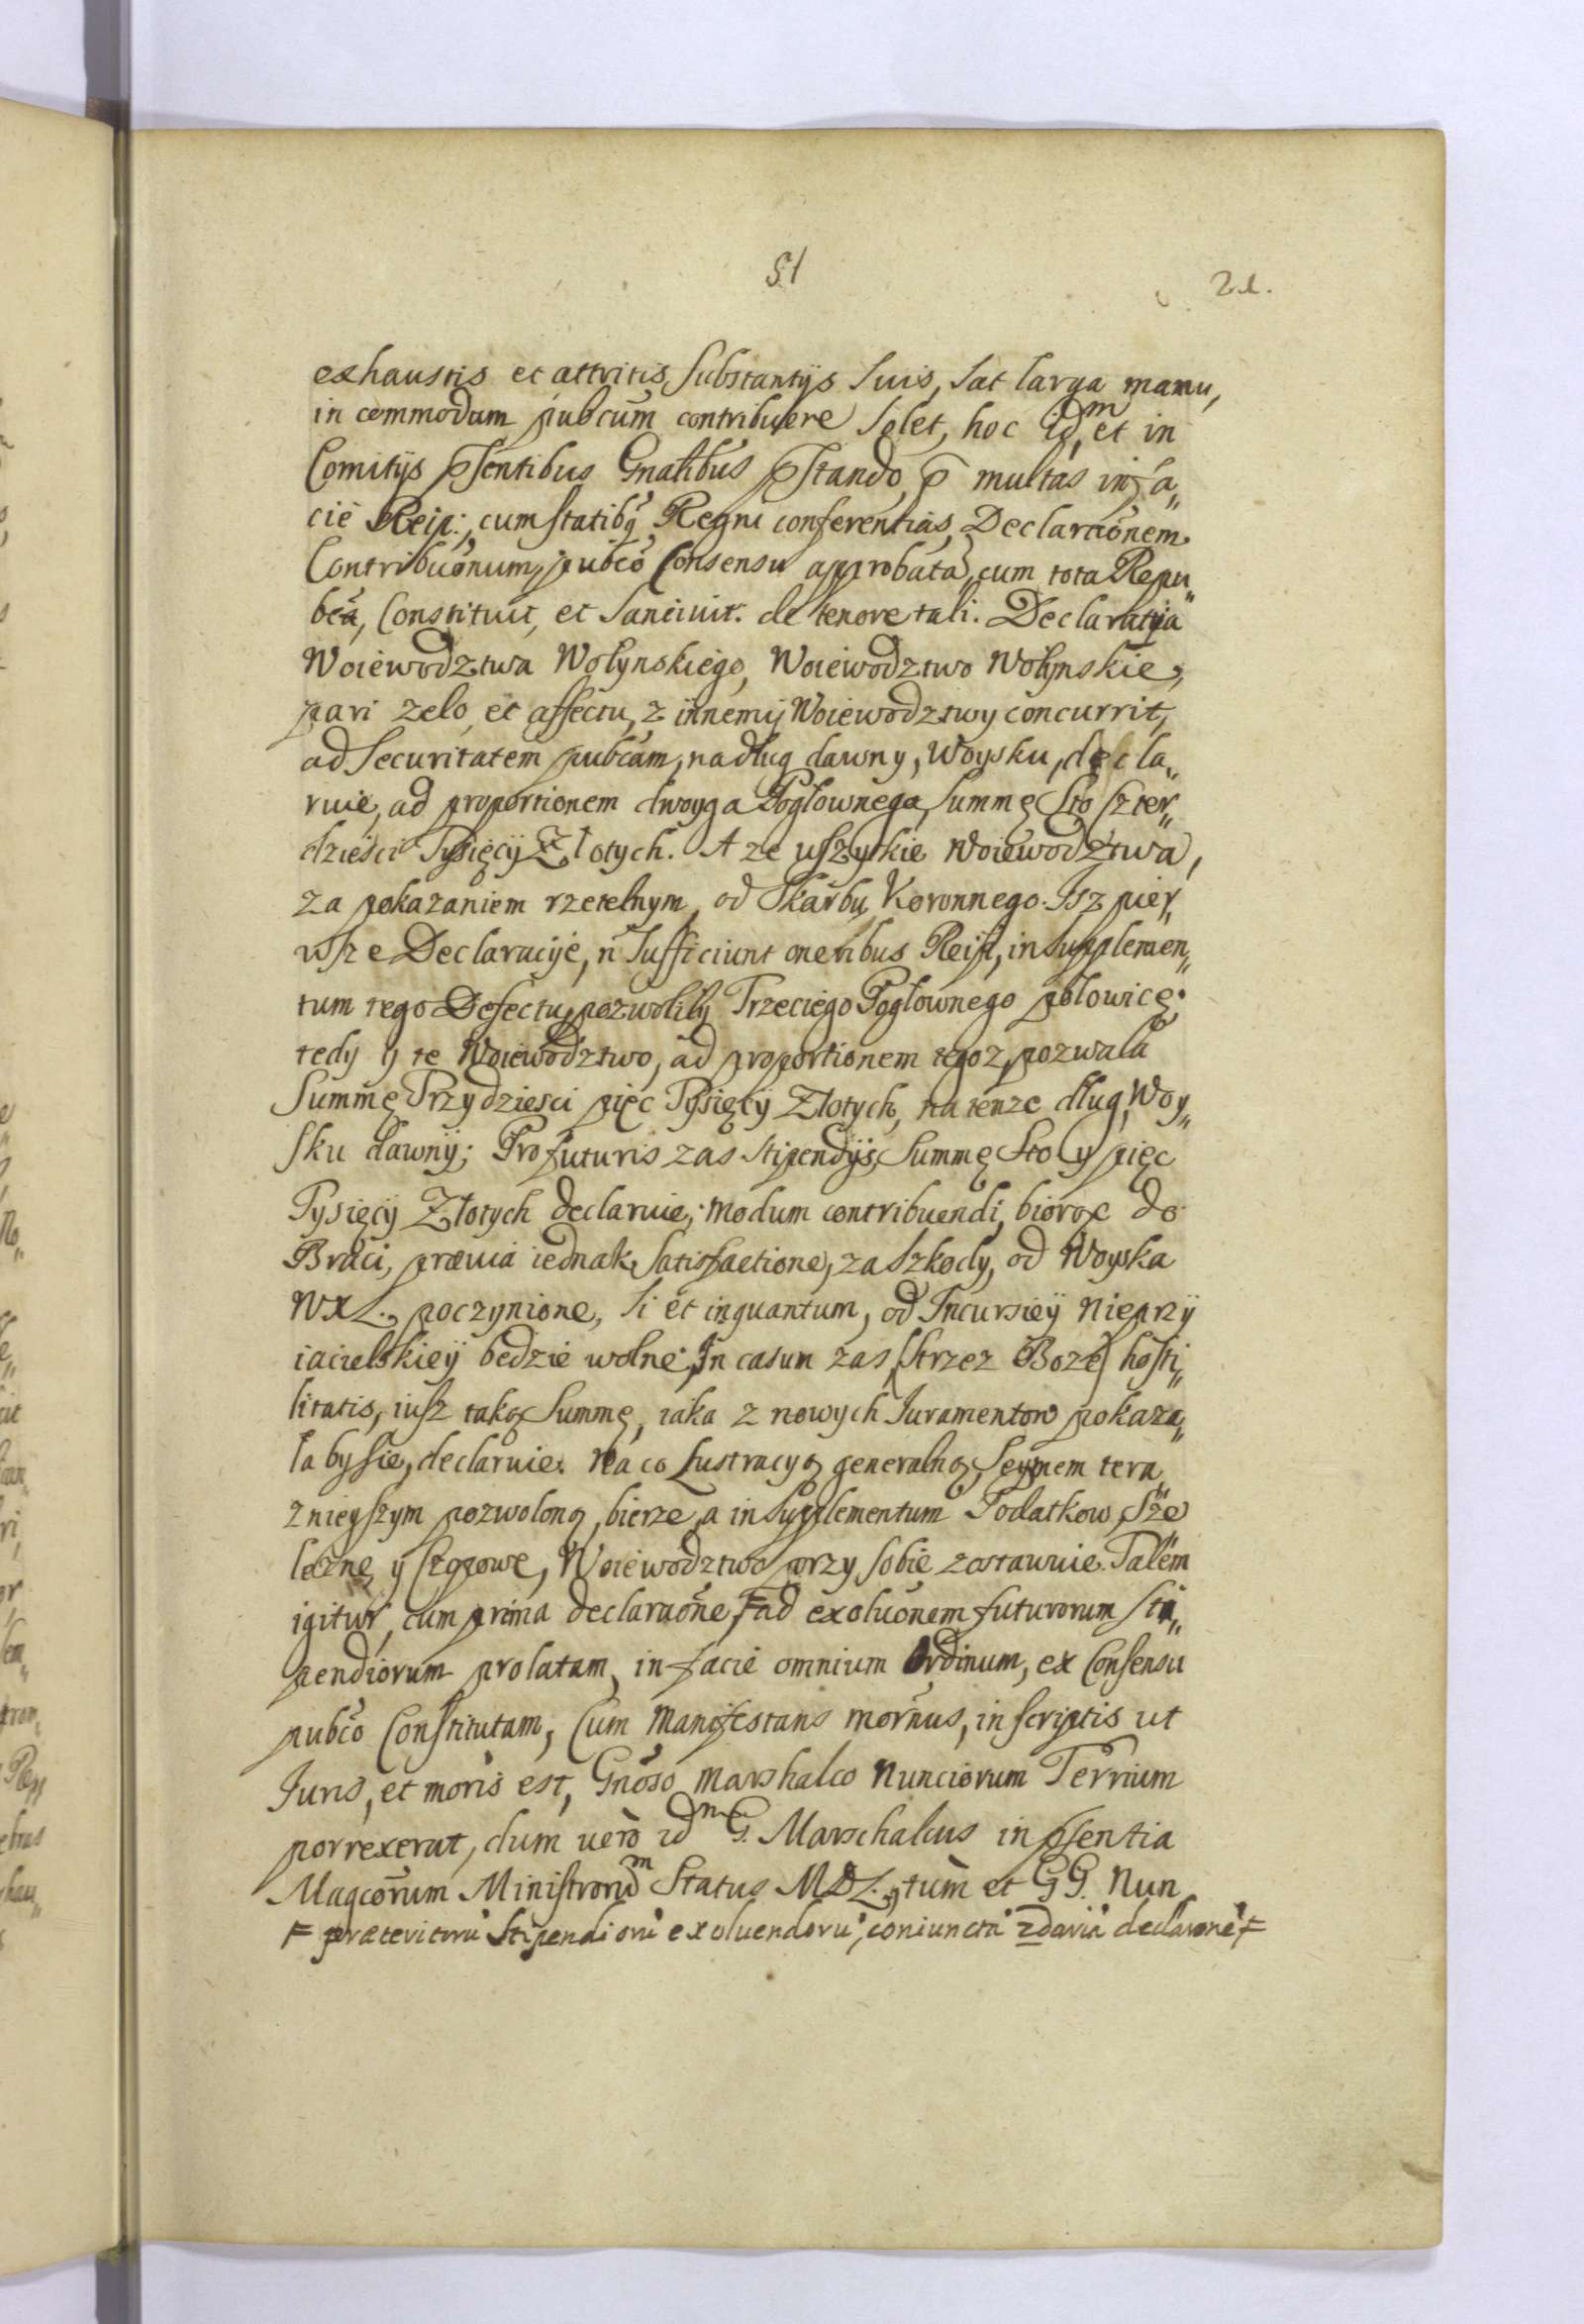 51
21.
exhaustis et attritis Substantijs Suis, Sat larga manu,
in commodum pubcum contribuere Solet, hoc idm et in
Comitijs p̄sentibus Gnalibus p̄stando, p̄ multas in fa„
cie Reip: cum statibq Regni conferentias, Declaraōnem
Contribuōnum, pubco Consensu approbatā, cum tota Repu„
bcā, Constituit, et Sancivit. de tenore tali. Declaratija
Woiewodztwa Wołynskiego, Woiewodztwo Wołynskie,
pari zelo, et affectu, z innemij Woiewodztwy concurrit,
ad Securitatem pubcam, na dług dawny, Woysku, decla„
ruie, ad proportionem dwoyga Pogłownego, Summę Sto Szter„
dziesci Tysięcij Złotych. A ze wszytkie Woiewodztwa,
za pokazaniem rzetelnym, od Skarbu Koronnego. Isz pier„
wsze Declaracije, n̄ Sufficiunt oneribus Reip, in Supplemen„
tum tego Defectu, pozwolilij Trzeciego Pogłownego połowicę.
tedij ij te Woiewodztwo, ad proportionem tegoz, pozwala
Summę Trzydziesci pięc Tysięcij Złotych, na tenze dług, Woy„
sku dawnij; Pro futuris zas Stipendijs, Summę Sto y pięc
Tysięcij Złotych declaruie, modum contribuendi, biorąc do
Braci, praevia iednak Satisfactione, za Szkody, od Woyska
WXL., poczynione, Si et inquantum, od Incursieij Nieprzij
iacielskieij bedzie wolne; In casum zas, (Strzez Boze) hosti„
litatis, iusz taką Summę, iaka z nowych Iuramentow pokaza„
ła by sie, declaruie. Na co Lustracyą generalną, Seymem tera„
znieyszym pozwoloną, bierze, a in Supplementum Podatkow, Sze„
lęzne y Czopowe, Woiewodztwo przy sobie zostawuie. Talem
igitur, cum prima declaraōne, F ad exoluōnem futurorum sti„
pendiorum prolatam, in facie omnium Ordinum, ex Consensu
pubco Constitutam, Cum Manifestans mōrnus, in scriptis ut
Iuris, et moris est, Gnōso Marshalco Nunciorum Terrium
porrexerat, dum vero idm G. Marschalcus in p̄sentia
Magcōrum Ministrorum Status MDL., tum et GG. Nun
F praeteritorū Stipendiorū exoluendorū, coniunctā declaraōnē F